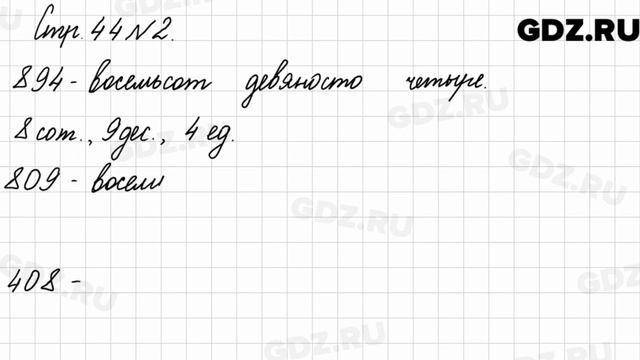 Стр. 44 N 2.
GDZ.RU
894 - восемьсот девяносто четыре.
8 сот., 9 дес., 4 ед.
809 - восем
408 -
GDZ.RU
GDZ.RU
GDZ.RU
GDZ.RU
GDZ.RU
GDZ.RU
GDZ.RU